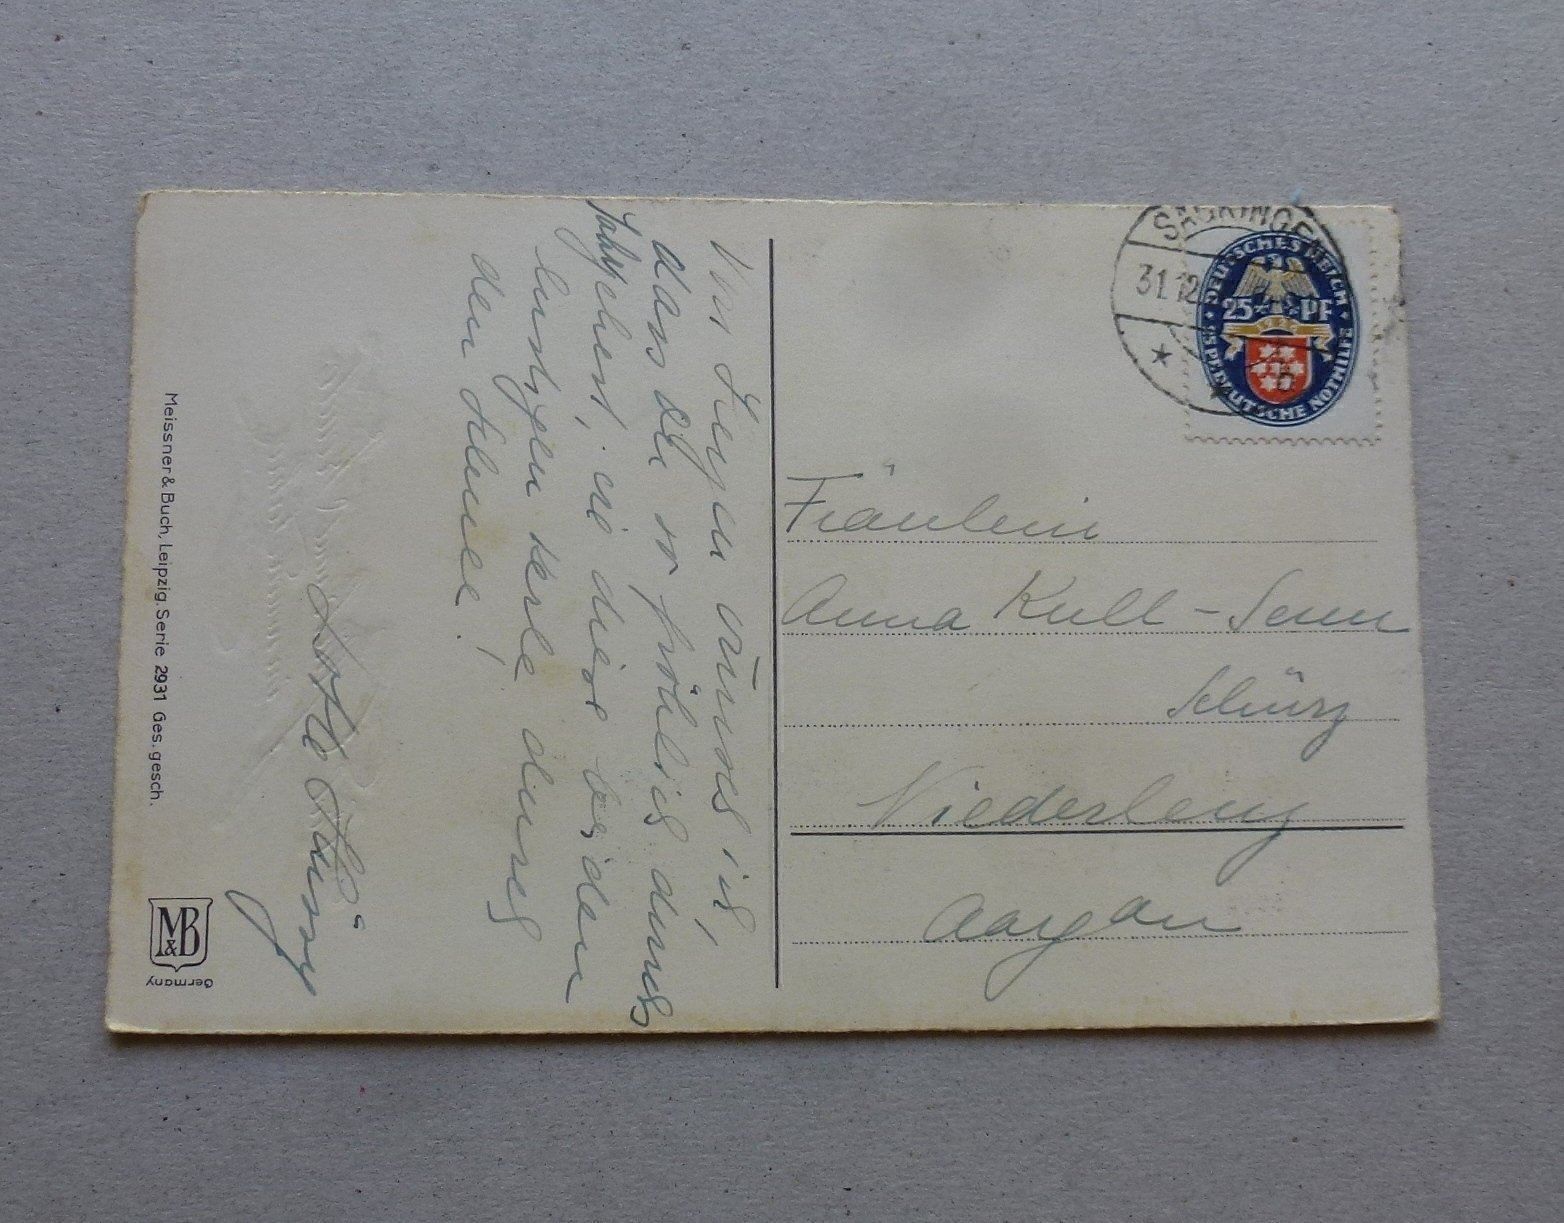 SÄCKINGEN
31.12
DEUTSCHES REICH
25 PF
DEUTSCHE NOTHILFE
Fräulein
Anna Kull-Senn
Schürz
Niederlenz
Aargau
Von Herzen wünsch ich,
dass du so fröhlich durchs
Jahr gehest, wie diese beiden
lustigen Kerle durch
den Schnee!
Meissner & Buch, Leipzig. Serie 2931 Ges. gesch.
M&B
Germany